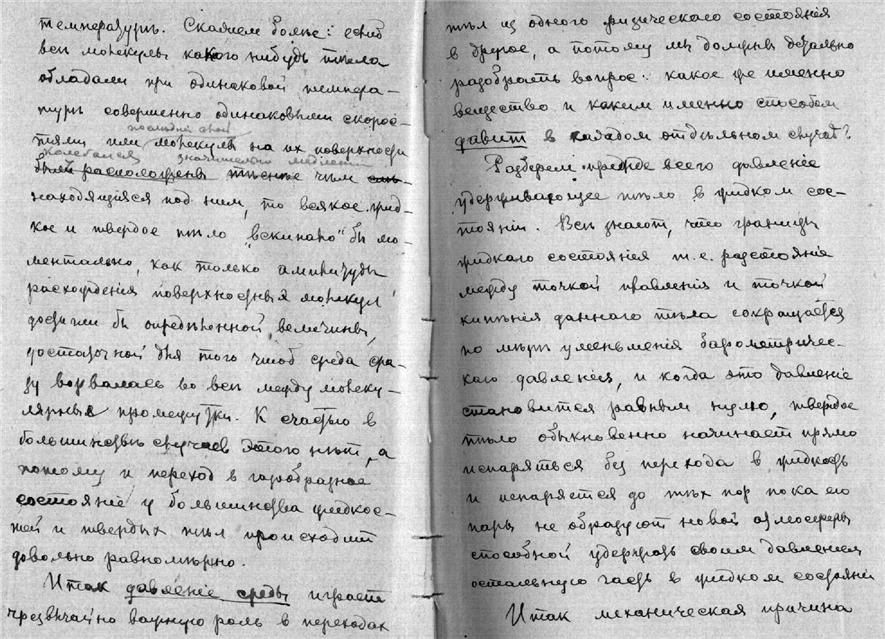 температуръ. Скажемъ болѣе: если б
всѣ молекулы какого нибудь тѣла
обладали при одинаковой темпера-
турѣ совершенно одинаковыми скорос-
последніе слои
тями или молекулы на их поверхности
колебанія значительно медленнѣй
были расположены тѣснѣе чѣм
находящіяся под ним, то всякое жид-
кое и твердое тѣло "вскипало" бы мо-
ментально, как только амплитуды
расхожденія поверхностных молекул
достигли бы опредѣленной величины,
достаточной для того чтоб среда сра-
зу ворвалась во всѣ между молеку-
лярные промежутки. К счастью в
большинствѣ случаев этого нѣт, а
потому и переход в газообразное
состояніе у большинства жидкос-
тей и твердых тѣл происходит
довольно равномѣрно.
Итак давленіе среды играет
чрезвычайно важную роль в переходах
тѣл из одного физическаго состоянія
в другое, а потому мы должны детально
разобрать вопрос: какое же именно
вещество и каким именно способом
давит в каждом отдѣльном случаѣ?
Разберем прежде всего давленіе
удерживающее тѣло в жидком сос-
тояніи. Всѣ знают, что границы
жидкаго состоянія т.е. разстоянія
между точкой плавленія и точкой
кипѣнія даннаго тѣла сокращается
по мѣрѣ уменьшенія барометричес-
каго давленія, и когда это давленіе
становится равным нулю, твердое
тѣло обыкновенно начинает прямо
испаряться без перехода в жидкость
и испаряется до тѣх пор пока его
пары не образуют новой атмосферы
способной удержать своим давленіем
остальную часть в жидком состояніи
Итак механическая причина